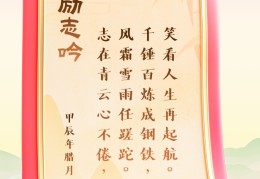 励志吟
志在青云心不倦，
风霜雪雨任蹉跎。
千锤百炼成钢铁，
笑看人生再起航。
甲辰年腊月